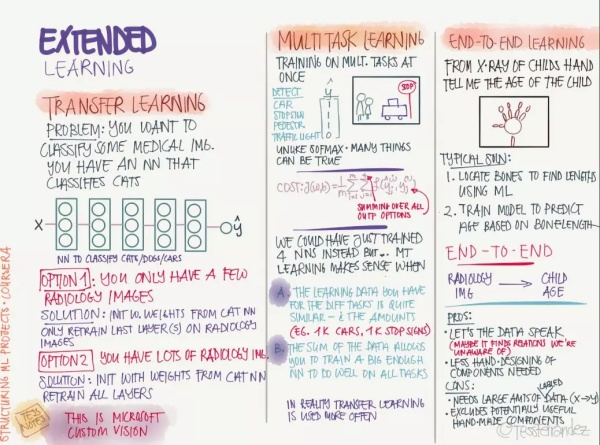 EXTENDED
LEARNING
TRANSFER LEARNING
PROBLEM: YOU WANT TO
CLASSIFY SOME MEDICAL IMG.
YOU HAVE AN NN THAT
CLASSIFIES CATS
X ŷ
NN TO CLASSIFY CATS/DOGS/CARS
OPTION 1: YOU ONLY HAVE A FEW
RADIOLOGY IMAGES
SOLUTION: INIT W. WEIGHTS FROM CAT NN
ONLY RETRAIN LAST LAYER(S) ON RADIOLOGY
IMAGES
OPTION 2 YOU HAVE LOTS OF RADIOLOGY IMG.
SOLUTION: INIT WITH WEIGHTS FROM CAT NN
RETRAIN ALL LAYERS
THIS IS MICROSOFT
CUSTOM VISION
STRUCTURING ML PROJECTS · COURSERA
TESS
NOTES
MULTITASK LEARNING
TRAINING ON MULT. TASKS AT
ONCE
DETECT
CAR
STOPSIGN
PEDESTR
TRAFFIC LIGHT
ŷ
STOP
UNLIKE SOFMAX · MANY THINGS
CAN BE TRUE
SUMMING OVER ALL
OUTP OPTIONS
WE COULD HAVE JUST TRAINED
4 NNS INSTEAD BUT... MT
LEARNING MAKES SENSE WHEN
A. THE LEARNING DATA YOU HAVE
FOR THE DIFF TASKS IS QUITE
SIMILAR - & THE AMOUNTS
(EG. 1K CARS, 1K STOP SIGNS)
B. THE SUM OF THE DATA ALLOWS
YOU TO TRAIN A BIG ENOUGH
NN TO DO WELL ON ALL TASKS
IN REALITY TRANSFER LEARNING
IS USED MORE OFTEN
END-TO-END LEARNING
FROM X-RAY OF CHILDS HAND
TELL ME THE AGE OF THE CHILD
TYPICAL SOLN:
1. LOCATE BONES TO FIND LENGTHS
USING ML
2. TRAIN MODEL TO PREDICT
AGE BASED ON BONELENGTH
END-TO-END
RADIOLOGY → CHILD
IMG AGE
PROS:
· LET'S THE DATA SPEAK
(MAYBE IT FINDS RELATIONS WE'RE
UNAWARE OF)
· LESS HAND-DESIGNING OF
COMPONENTS NEEDED
CONS:
LABELED
· NEEDS LARGE AMTS OF DATA (X→Y)
· EXCLUDES POTENTIALLY USEFUL
HAND-MADE COMPONENTS
@tessferrandez